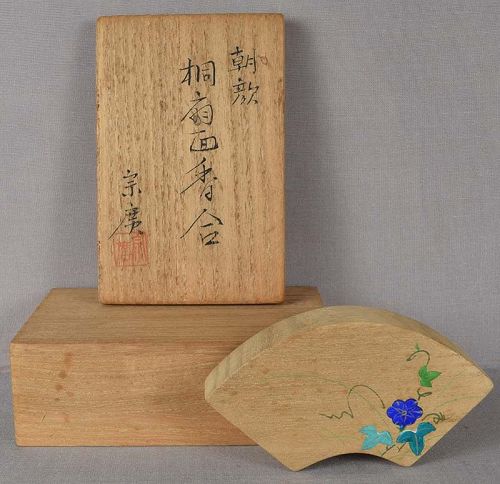 朝顔
桐扇面香合
宗廣